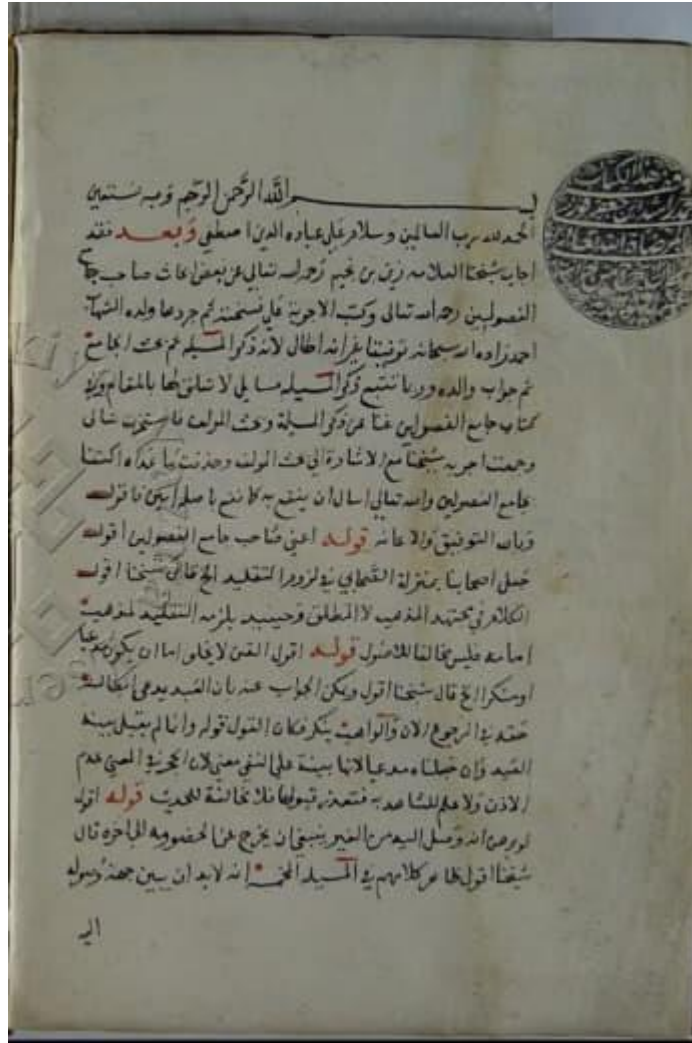 بسم الله الرحمن الرحيم وبه نستعين
الحمد لله رب العالمين وسلام على عباده الذين اصطفى وبعد فقد
اجاب شيخنا العلامه زين بن نجيم رحمه الله تعالى عن بعض ابحاث صاحب جامع
الفصولين رحمه الله تعالى وكتب الاجوبة على نسخته ثم جردها ولده الشهاب
احمد زاده الله سبحانه توفيقا غير انه اطال لانه ذكر المسيله ثم بحث الجامع
ثم جواب والده وربما تتبع ذكر المسيله مسايل لا تعلق لها بالمقام وفي
كتاب جامع الفصولين غنا عن ذكر المسيلة وبحث المولف فاستخرت الله تعالى
وجمعت اجوبه شيخنا مع الاشارة الى بحث المولف وحذفت ما عداه اكتفا
بجامع الفصولين والله تعالى اسال ان ينفع به كما نفع باصله امين فاقول
وبالله التوفيق والاعانه قوله اعني صاحب جامع الفصولين اقول
جعل اصحابنا بمنزلة الصحابي في لزوم التقليد الخ قال شيخنا اقول
الكلام في مجتهد المذهب لا المطلق وحينيذ يلزمه التقليد لمذهب
امامه فليس مخالفا للاصول قوله اقول القن لا يخلو اما ان يكون مدعيا
او منكرا الخ قال شيخنا اقول ويمكن الجواب عنه بان العبد يدعي
حقه في الرجوع الان والواهب ينكر فكان القول قوله وانما لم يقبل بينة
العبد وان جعلناه مدعيا لانها بينة على النفي معنى لان الحجر في المعنى عدم
الاذن ولا علم للشاهد به فتعذر قبولها فلا مخالفة للحديث قوله اقول
لو برهن انه وصل اليه من الغير ينبغي ان يخرج عن الخصومه الى اخره قال
شيخنا اقول ظاهر كلامهم في المسيله انه لا بد ان يبين جهة وصوله
اليه